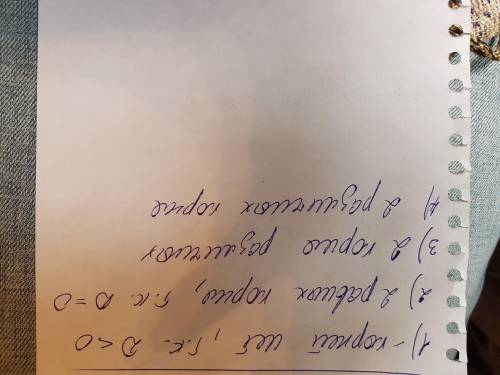 1) - корней нет, т.к. D < 0
2) 2 равных корня, т.к. D = 0
3) 2 корня различных
4) 2 различных корня